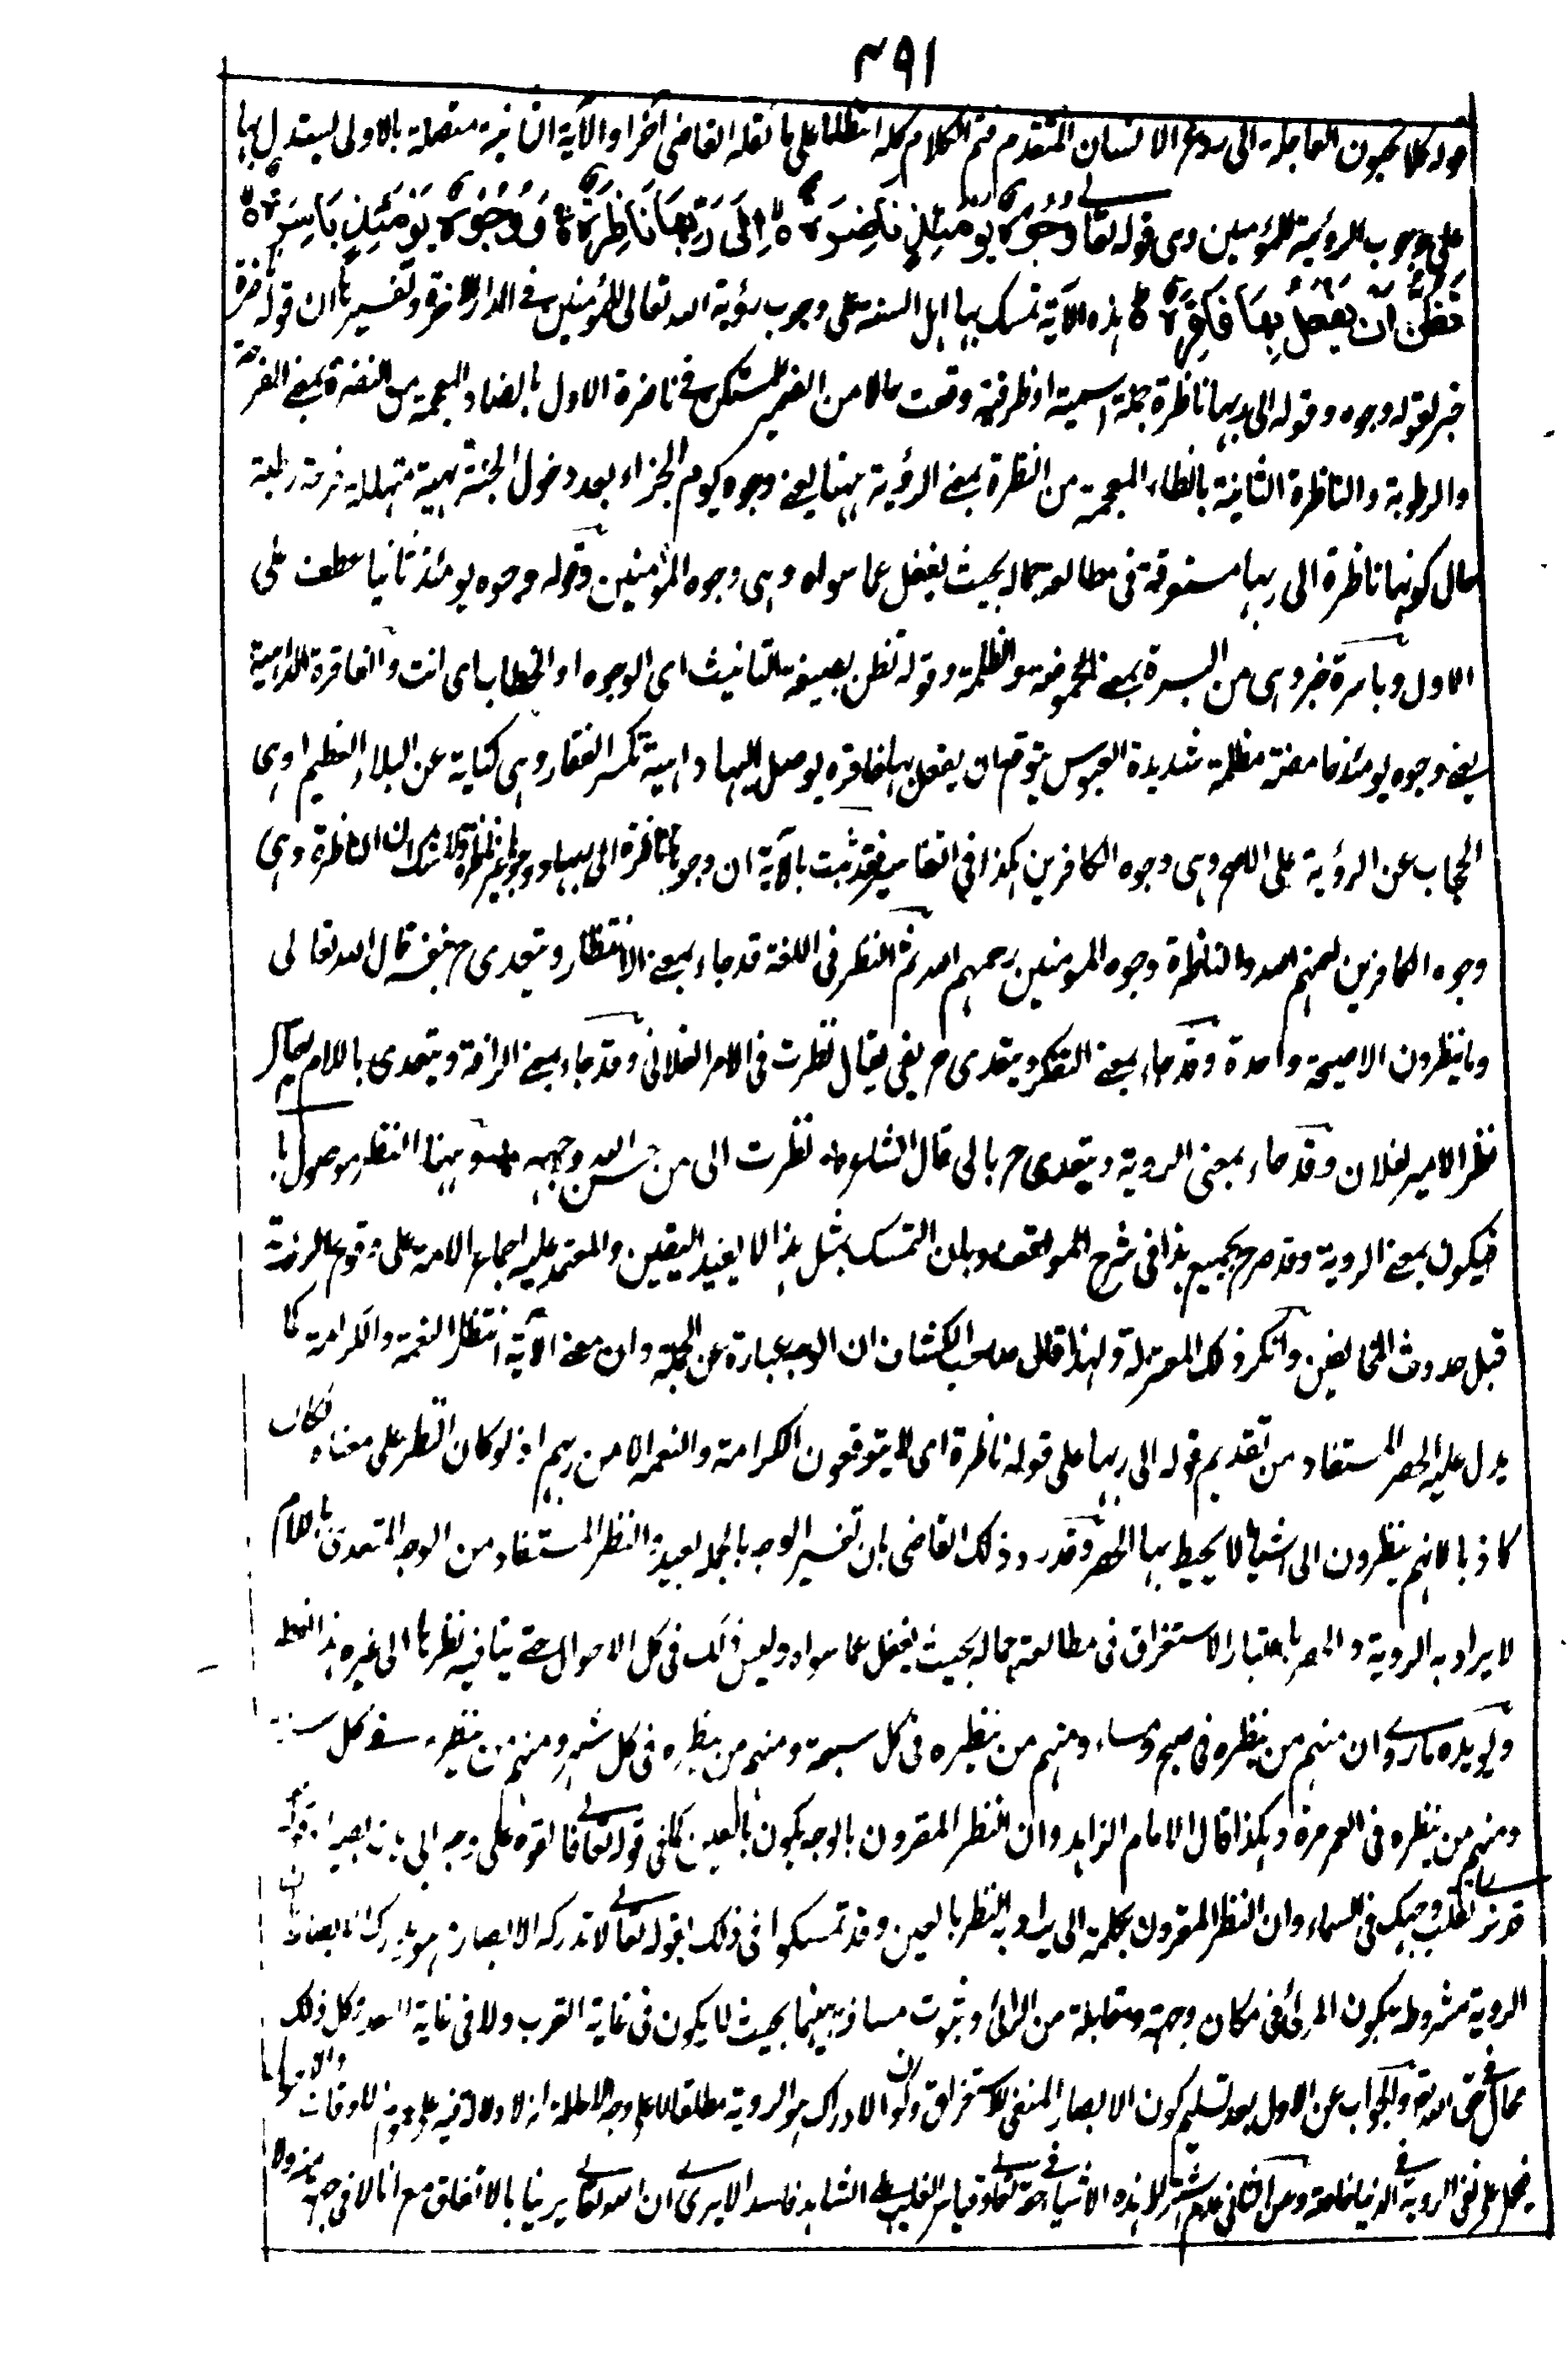 ٣٩١
قوله كلا تحبون العاجلة الى ردع الانسان المتقدم فتم الكلام كله انتظاما على ما نقله القاضى آخرا والآية الثانية متصلة بالاولى ليستدل بها
على وجوب الرؤية للمؤمنين وهى قوله تعالى وُجُوْهٌ يَّوْمَئِذٍ نَّاضِرَةٌ ۝ اِلٰى رَبِّهَا نَاظِرَةٌ ۝ وَ وُجُوْهٌ يَّوْمَئِذٍ بَاسِرَةٌ ۝
تَظُنُّ اَنْ يُّفْعَلَ بِهَا فَاقِرَةٌ ۝ هذه الآية تمسك بها اهل السنة على وجوب رؤية الله تعالى للمؤمنين فى الدار الآخرة وتفسيرها ان قوله ناضرة
خبر لقوله وجوه وقوله الى ربها ناظرة جملة اسمية او ظرفية وقعت حالا من الضمير المستكن فى ناضرة الاول بالضاد المعجمة من النضرة بمعنى الفرحة
والرطوبة والناظرة الثانية بالظاء المعجمة من النظرة بمعنى الرؤية ههنا يعنى وجوه يوم الجزاء بعد دخول الجنة بهية متهللة فرحة رطبة
حال كونها ناظرة الى ربها مستغرقة فى مطالعة جماله بحيث تغفل عما سواه وهى وجوه المؤمنين وقوله وجوه يومئذ ثانيا عطف على
الاول وباسرة خبر وهى من البسرة بمعنى الحموضة والظلمة وقوله تظن بصيغة التانيث اى الوجوه او الخطاب اى انت والفاقرة الداهية
يعنى وجوه يومئذ حامضة مظلمة شديدة العبوس يتوقع ان يفعل بها فاقرة يوصل اليها داهية تكسر الفقار وهى كناية عن البلاء العظيم او هى
الحجاب عن الرؤية على اللهم وهى وجوه الكافرين هكذا فى التفاسير فقد ثبت بالآية ان وجوها ناظرة الى ربها ووجوها غير ناظرة ولا شك ان الناظرة وهى
وجوه الكافرين لعنهم الله والناظرة وجوه المومنين رحمهم الله ثم النظر فى اللغة قد جاء بمعنى الانتظار ويتعدى ح بنفسه قال الله تعالى
وما ينظرون الا صيحة واحدة وقد جاء بمعنى التفكر ويتعدى ح بفى يقال نظرت فى الامر الفلانى وقد جاء بمعنى الرافة ويتعدى باللام يقال
نظر الامير لفلان وقد جاء بمعنى الروية ويتعدى ح بالى قال الشاعر نظرت الى من حسن الله وجهه ههنا النظر موصول با
فيكون بمعنى الروية وقد صرح بجميع هذا فى شرح المواقف وبان التمسك بمثل هذا لا يفيد اليقين والمعتمد عليه اجماع الامة على وقوع الرؤية
قبل حدوث المخالفين وانكر ذلك المعتزلة ولهذا قال صاحب الكشاف ان الوجه عبارة عن الجملة وان معنى الآية انتظار النعمة والكرامة كما
يدل عليه الحصر المستفاد من تقديم قوله الى ربها على قوله ناظرة اى لا يتوقعون الكرامة والنعمة الا من ربهم اذ لو كان النظر على معناه فكان
كاذبا لانهم ينظرون الى اشياء لا يحيط بها الحصر وقد رد ذلك القاضى بان تفسير الوجه بالجملة بعيد والنظر المستفاد من الوجه المتعدى باللام
لا يراد به الروية والحصر باعتبار الاستغراق فى مطالعة جماله بحيث يغفل عما سواه وليس ذلك فى كل الاحوال حتى ينافيه نظرها الى غيره هذا لفظه
ويويده ما روى ان منهم من ينظره فى صبح ومساء ومنهم من ينظره فى كل سبعة ومنهم من ينظره فى كل شهر ومنهم من ينظره فى كل سنة
ومنهم من ينظره فى العمر مرة وهكذا قال الامام الزاهد وان النظر المقرون بالوجه يكون بالعين كما فى قوله تعالى فالقوه على وجه ابى يات بصيرا وقوله
قد نرى تقلب وجهك فى السماء وان النظر المقرون بكلمة الى يراد به النظر بالعين وقد تمسكوا فى ذلك بقوله تعالى لا تدركه الابصار وهو يدرك الابصار
الروية مشروطة بكون المرئى فى مكان وجهة ومقابلة من الرائى وثبوت مسافة بينهما بحيث لا يكون فى غاية القرب ولا فى غاية البعد وكل ذلك
محال فى حق الله تعالى والجواب عن الاول بعد تسليم كون الابصار المنفى للاستغراق وكون الادراك هو الروية مطلقا لا على وجه الاحاطة انه لا دلالة فيه على عموم الاوقات والاحوال
فيحمل على نفى الروية فى الدنيا خاصة وعن الثانى عدم اشتراط هذه الاشياء فى حقه تعالى وقياس الغائب على الشاهد فاسد الا يرى ان الله تعالى يرينا بالاتفاق مع انا لا فى جهة منه ولا